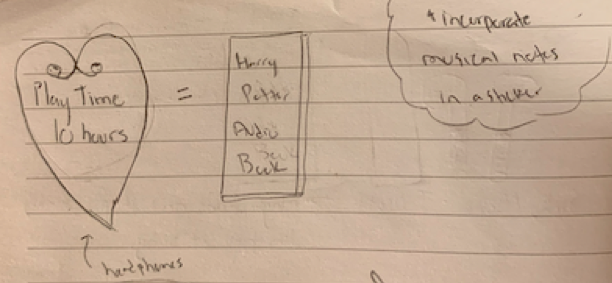 Play Time
10 hours
=
Harry
Potter
Audio
Book
* incorporate
musical notes
in a
headphones